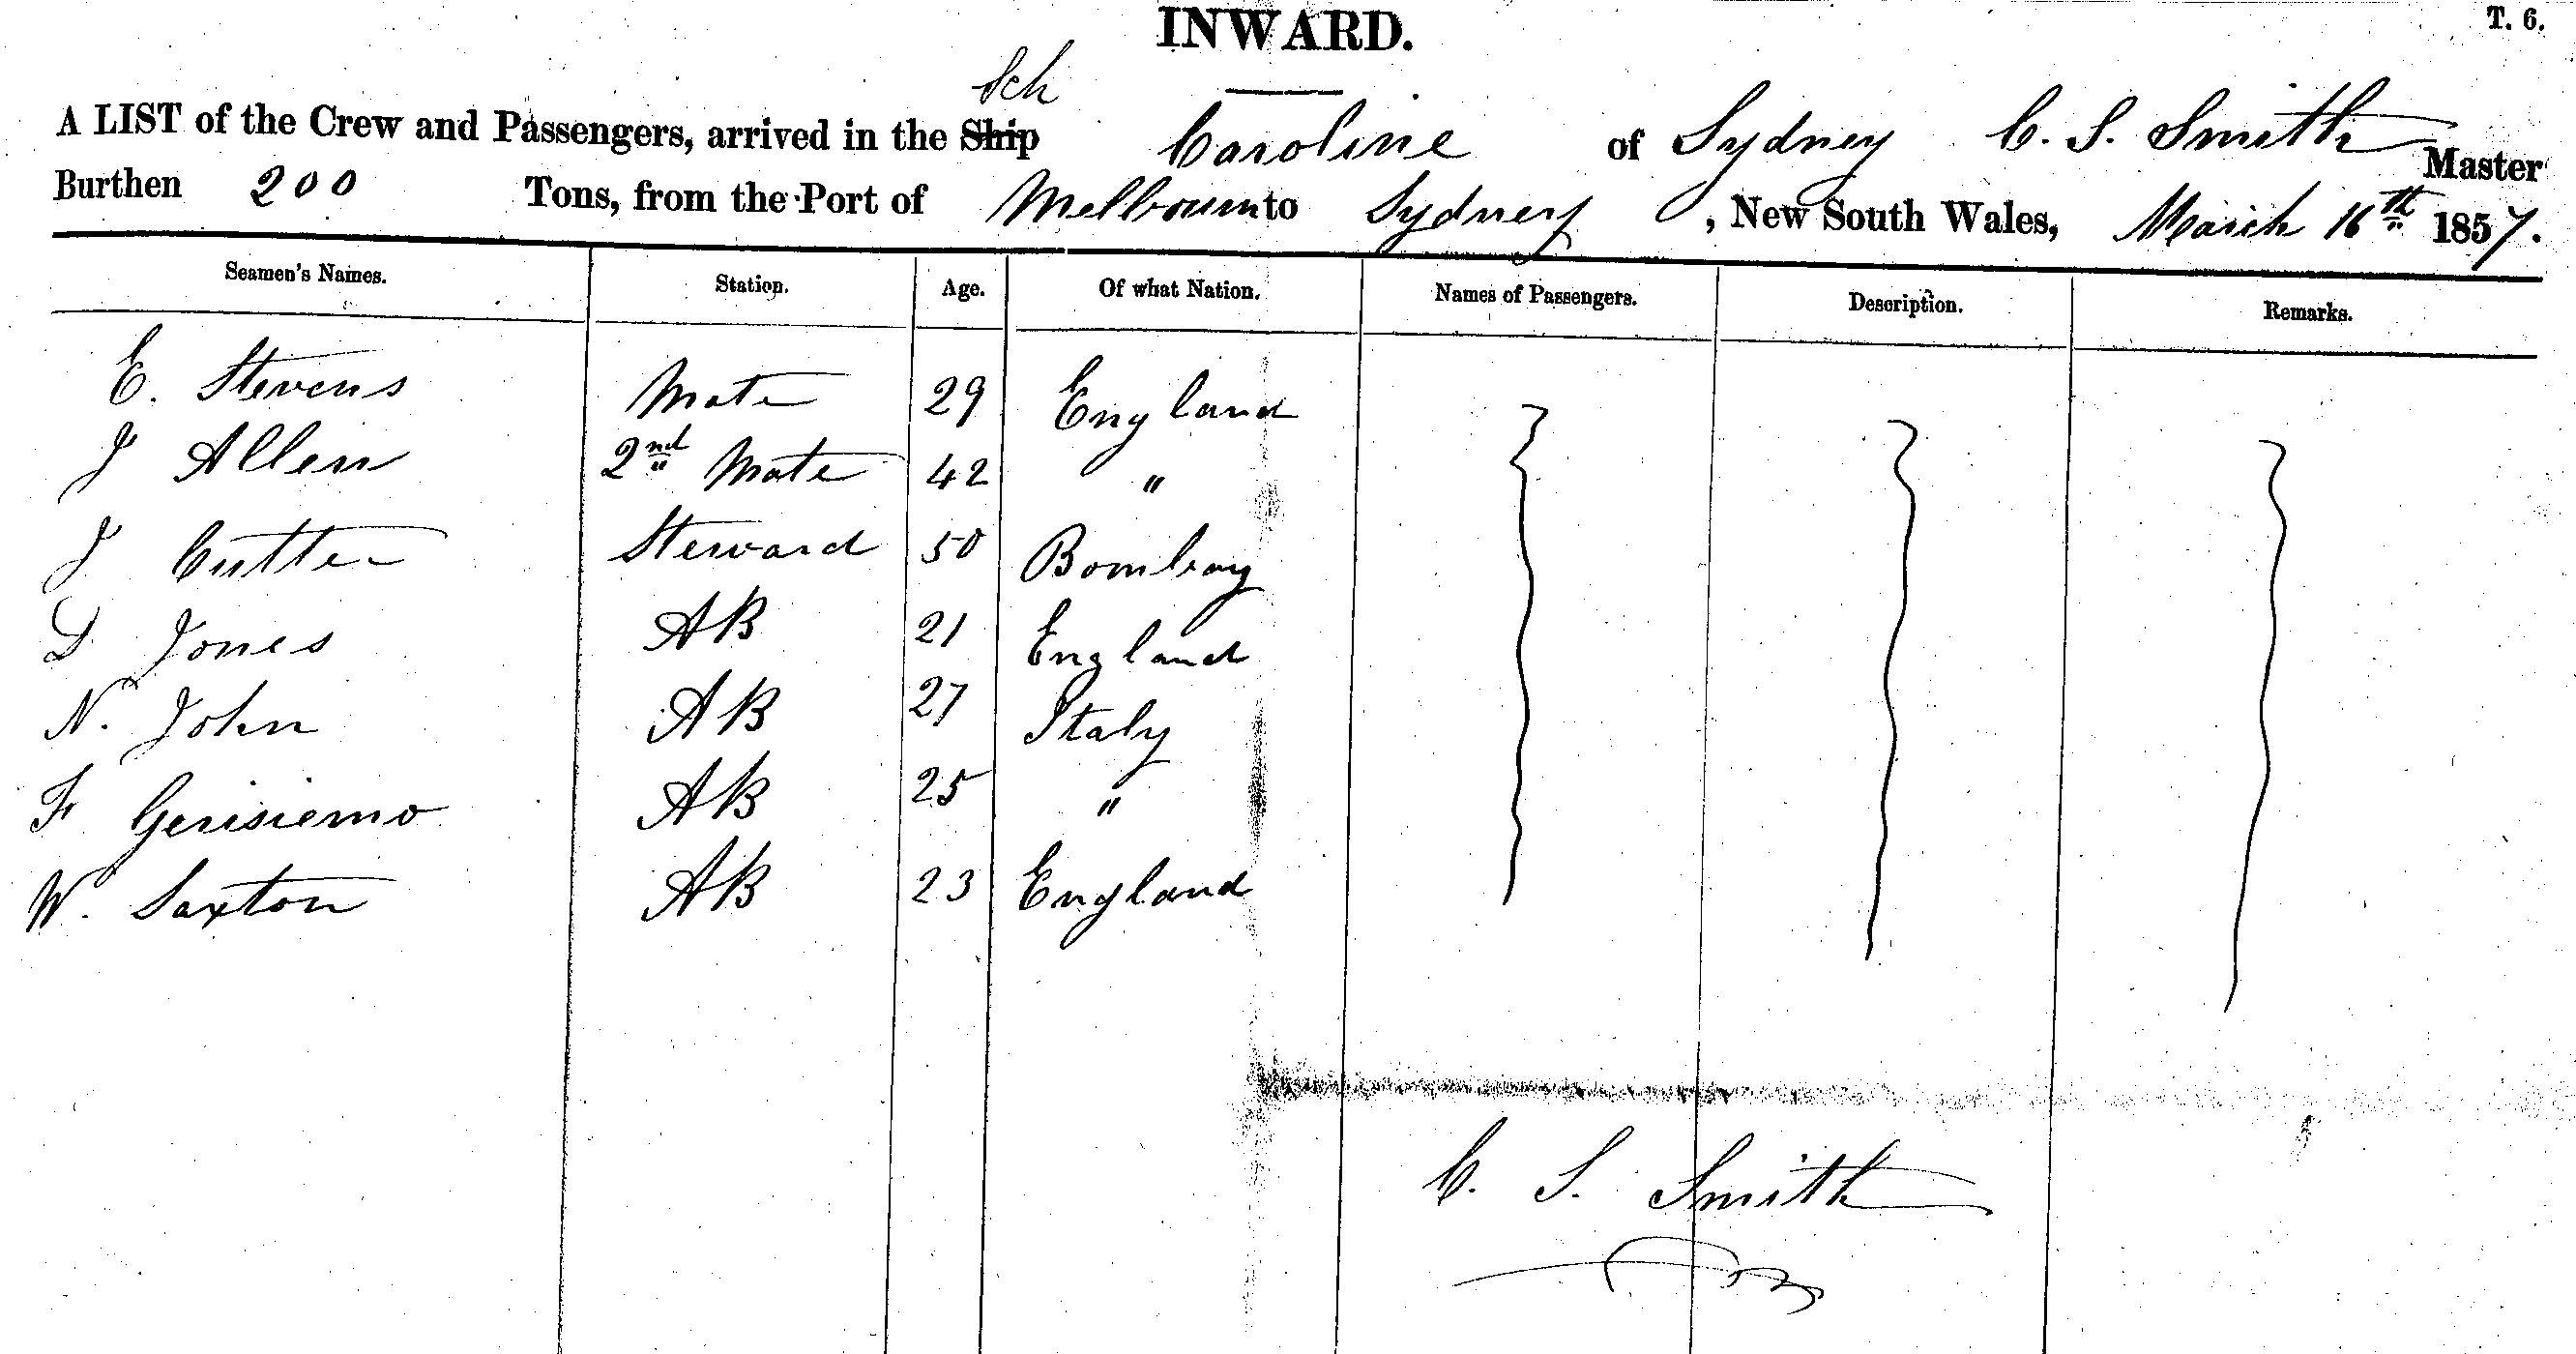 INWARD.
T. 6.
Sch
A LIST of the Crew and Passengers, arrived in the Ship Caroline of Sydney C. S. Smith Master
Burthen 200 Tons, from the Port of Melbourn to Sydney, New South Wales, March 16th 1857.
Seamen's Names. Station. Age. Of what Nation. Names of Passengers. Description. Remarks.
E. Stevens Mate 29 England
J Allen 2nd Mate 42 "
J Cutter Steward 50 Bombay
D Jones AB 21 England
N. John AB 27 Italy
F Gerisiemo AB 25 "
W. Saxton AB 23 England
C. S. Smith